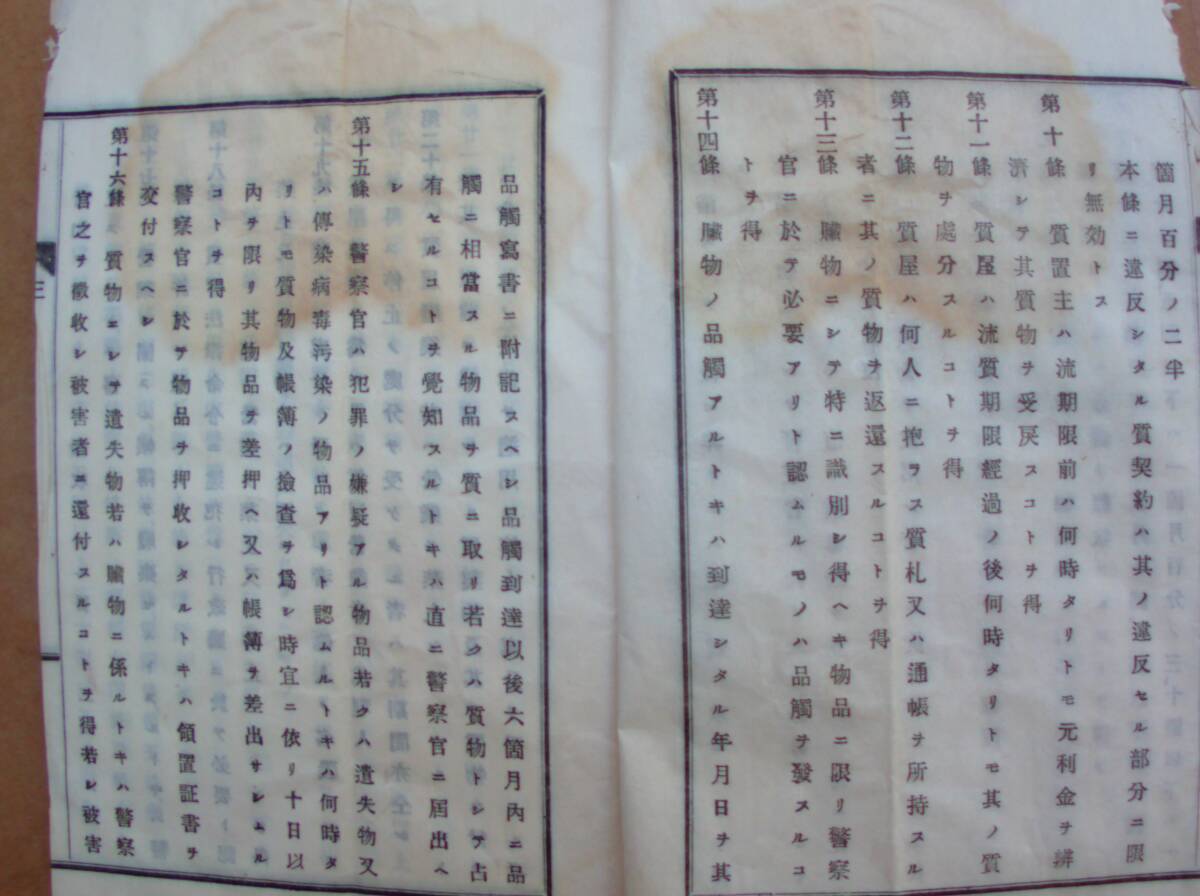 箇月百分ノ二半
本條ニ違反シタル質契約ハ其ノ違反セル部分ニ限
リ無効トス
第十條 質置主ハ流期限前ハ何時タリトモ元利金ヲ辨
濟シテ其質物ヲ受戻スコトヲ得
第十一條 質屋ハ流質期限經過ノ後何時タリトモ其ノ質
物ヲ處分スルコトヲ得
第十二條 質屋ハ何人ニ抱ラス質札又ハ通帳ヲ所持スル
者ニ其ノ質物ヲ返還スルコトヲ得
第十三條 贓物ニシテ特ニ識別シ得ヘキ物品ニ限リ警察
官ニ於テ必要アリト認ムルモノハ品觸ヲ發スルコ
トヲ得
第十四條 贓物ノ品觸アルトキハ到達シタル年月日ヲ其
品觸寫書ニ附記スヘシ品觸到達以後六箇月內ニ品
觸ニ相當スル物品ヲ質ニ取リ若クハ質物トシテ占
有セルコトヲ覺知スルトキハ直ニ警察官ニ屆出ヘ
シ
第十五條 警察官ハ犯罪ノ嫌疑アル物品若クハ遺失物又
ハ傳染病毒汚染ノ物品アリト認ムルトキハ何時タ
リトモ質物及帳簿ノ撿查ヲ爲シ時宜ニ依リ十日以
內ヲ限リ其物品ヲ差押ヘ又ハ帳簿ヲ差出サシムル
コトヲ得
警察官ニ於テ物品ヲ押收シタルトキハ領置証書ヲ
交付スヘシ
第十六條 質物ニシテ遺失物若ハ贓物ニ係ルトキハ警察
官之ヲ徵收シ被害者ニ還付スルコトヲ得若シ被害
三